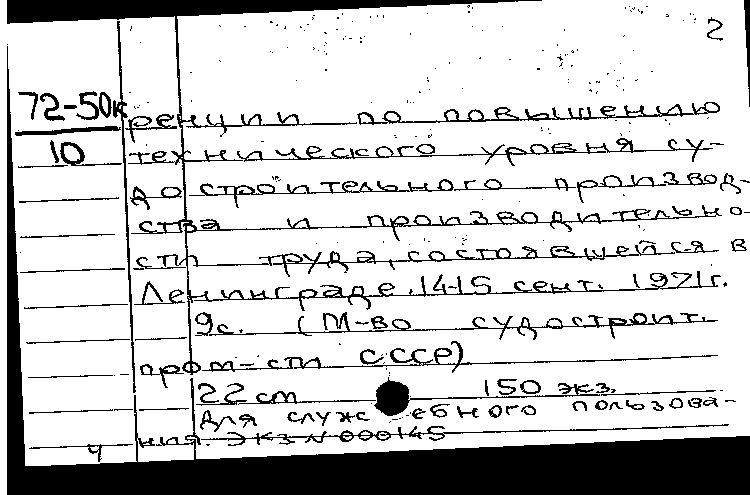 2
72-50к
10
ренции по повышению
технического уровня су-
достроительного производ-
ства и производительно
сти труда, состоявшейся в
Ленинграде. 14-15 сент. 1971г.
9с. (М-во судостроит.
пром-сти СССР)
22 cm 150 экз.
Для служебного пользова-
ния. Экз N 000145
4